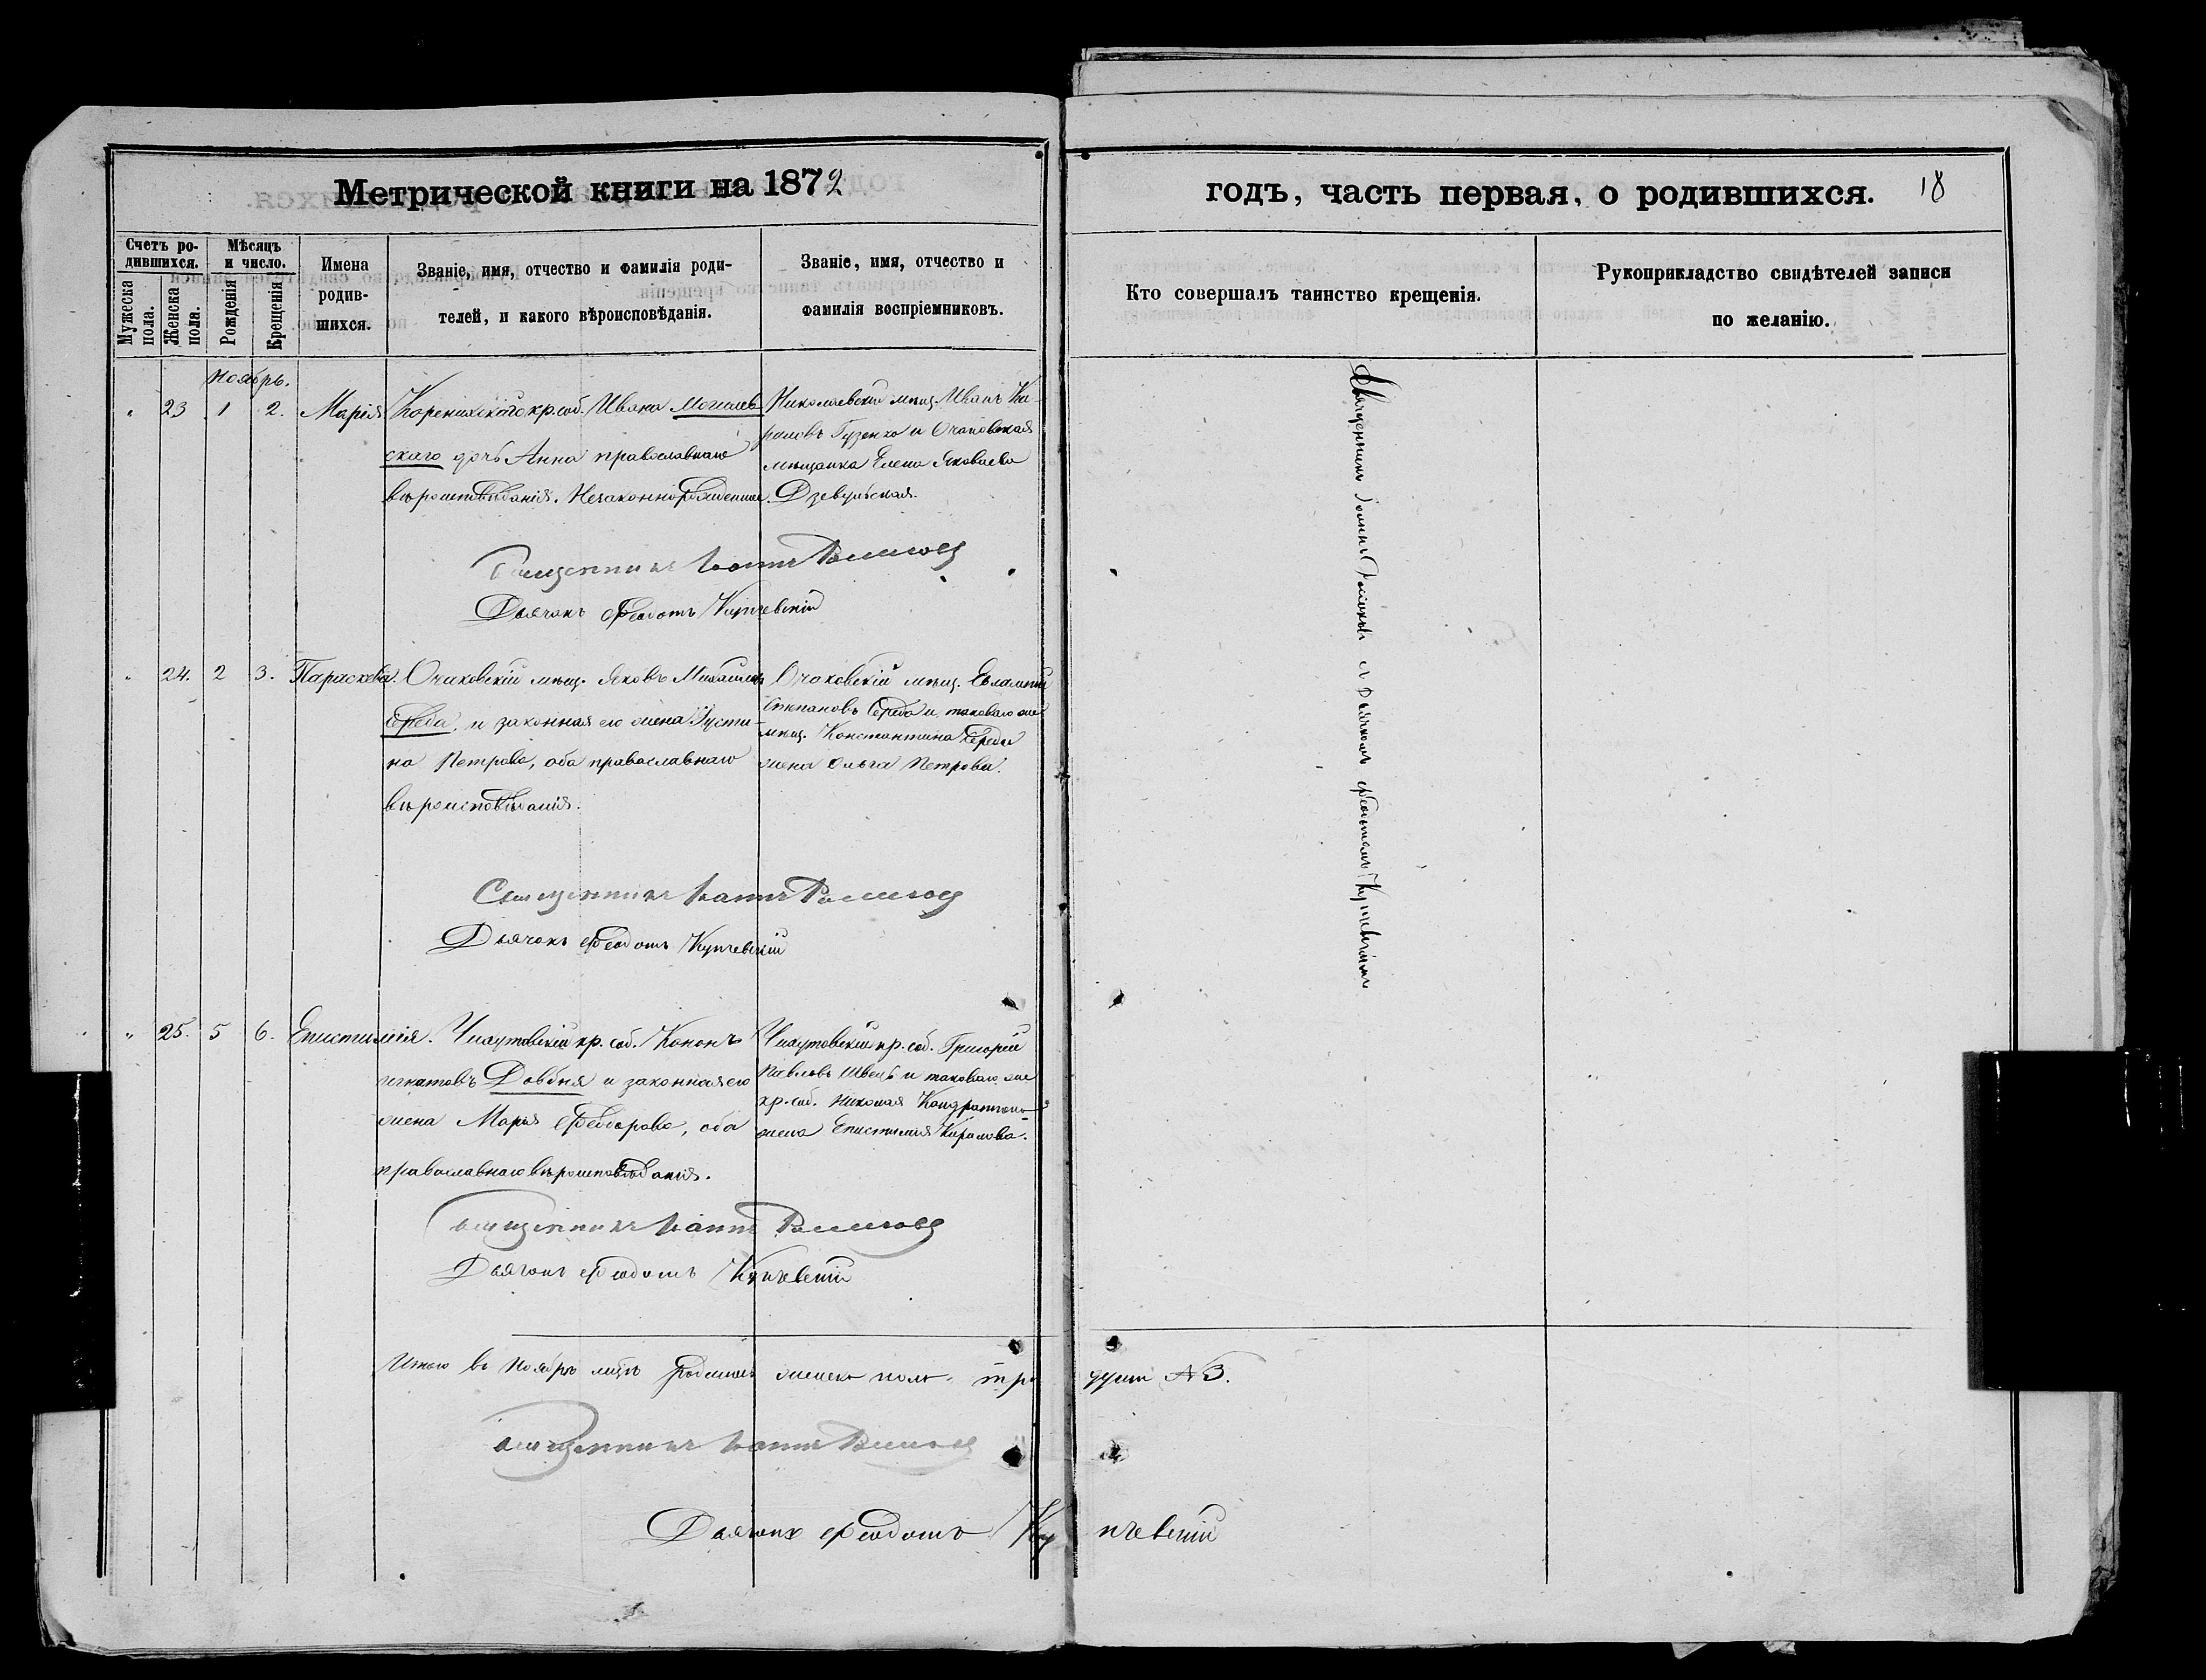 Метрической книги на 1872
годъ, часть первая, о родившихся. 18
Счетъ ро-
дившихся.
Мужеска
пола.
Женска
пола.
Мѣсяцъ
и число.
Рожденія
Крещенія
Имена
родив-
шихся.
Званіе, имя, отчество и фамилія роди-
телей, и какого вѣроисповѣданія.
Званіе, имя, отчество и
фамилія воспріемниковъ.
Кто совершалъ таинство крещенія.
Рукоприкладство свидѣтелей записи
по желанію.
Ноябрь.
" 23 1 2. Марія
кр. соб. Ивана Могилев-
скаго дочь Анна православнаго
вѣроисповѣданія. Незаконнорожденная.
Николаевскій мѣщ. Иванъ Ки-
риловъ Гузенко и Очаковская
мѣщанка Елена Яковлева
Дзевульская.
Священникъ Іоаннъ
Дьячокъ Ѳеодотъ Купчевскій
" 24. 2 3. Параскева.
Очаковскій мѣщ. Яковъ Михаиловъ
Середа, и законная его жена Густи-
на Петрова, оба православнаго
вѣроисповѣданія.
Очаковскій мѣщ. Евлампій
Степановъ Середа и таковаго же
мѣщ. Константина Середы
жена Ольга Петрова.
Священникъ Іоаннъ
Дьячокъ Ѳеодотъ Купчевскій
" 25. 5 6. Епистимія.
кр. соб. Кононъ
Игнатовъ Довбня и законная его
жена Марія Ѳеодорова, оба
православнаго вѣроисповѣданія.
кр. соб. Григорій
Павловъ Швецъ и таковаго же
кр. соб. Николая
жена Епистимія Кирилова.
Священникъ Іоаннъ
Дьячокъ Ѳеодотъ Купчевскій
Священникъ Іоаннъ съ Дьячкомъ Ѳеодотомъ Купчевскимъ
Итого въ Ноябрѣ родилось женска пола три души №3.
Священникъ Іоаннъ
Дьячокъ Ѳеодотъ Купчевскій